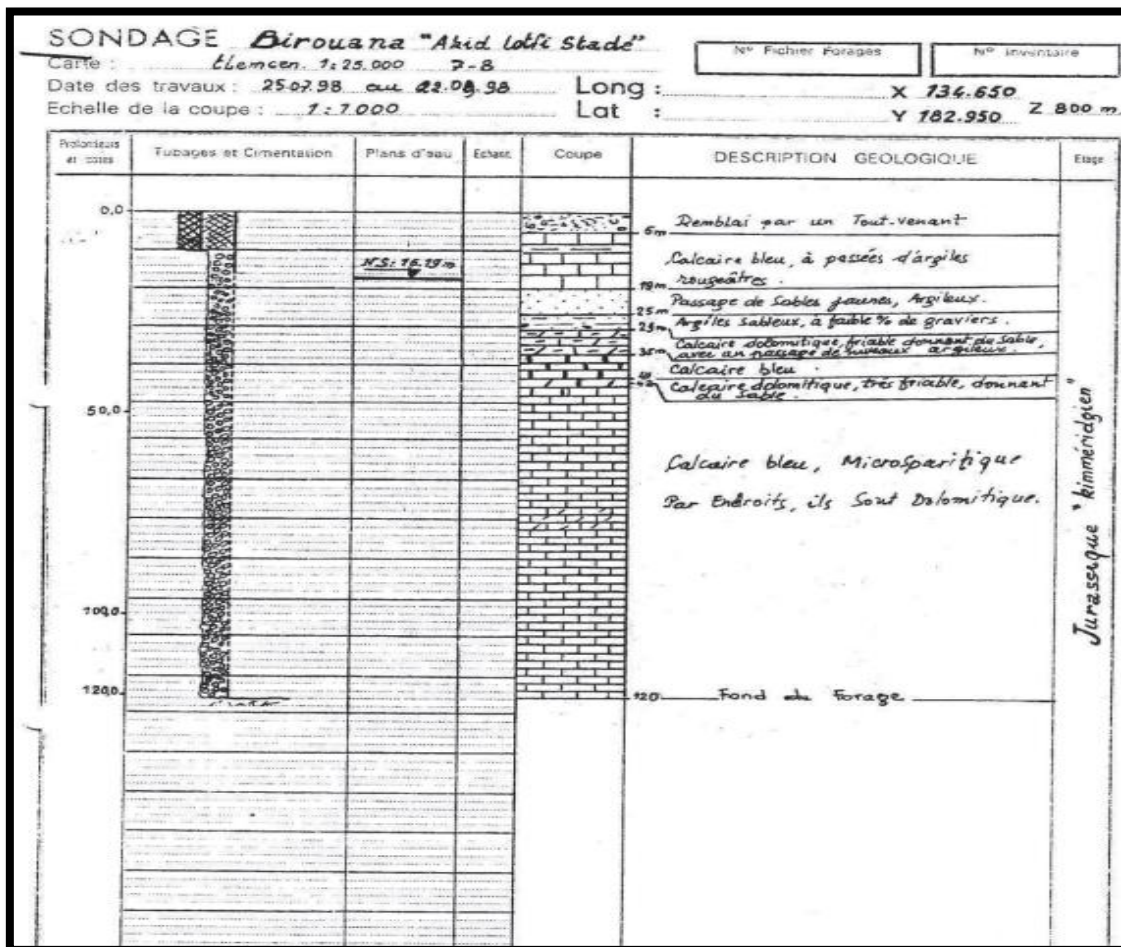 SONDAGE Birouana "Akid lotfi Stade"
N° Fichier Forages
N° Inventaire
Carte : tlemcen. 1:25.000 7-8
Date des travaux : 25.07.98 au 22.08.98 Long : X 134.650
Echelle de la coupe : 1:1000 Lat : Y 182.950 Z 800 m
Profondeurs et cotes
Tubages et Cimentation
Plans d'eau
Echant.
Coupe
DESCRIPTION GEOLOGIQUE
Etage
0,0
6m Remblai par un Tout-venant
N.S: 16.19m
Calcaire bleu, à passées d'argiles
rougeâtres.
19m
Passage de Sables jaunes, Argileux.
25m
Argiles Sableux, à faible % de graviers.
Calcaire dolomitique, friable donnant du Sable,
35m avec un passage de niveaux argileux.
Calcaire bleu.
Calcaire dolomitique, très friable, donnant
du Sable.
50,0
Calcaire bleu, Microsparitique
Par Endroits, ils Sont Dolomitique.
Jurassique "kimméridgien"
100,0
120,0
120 Fond du Forage